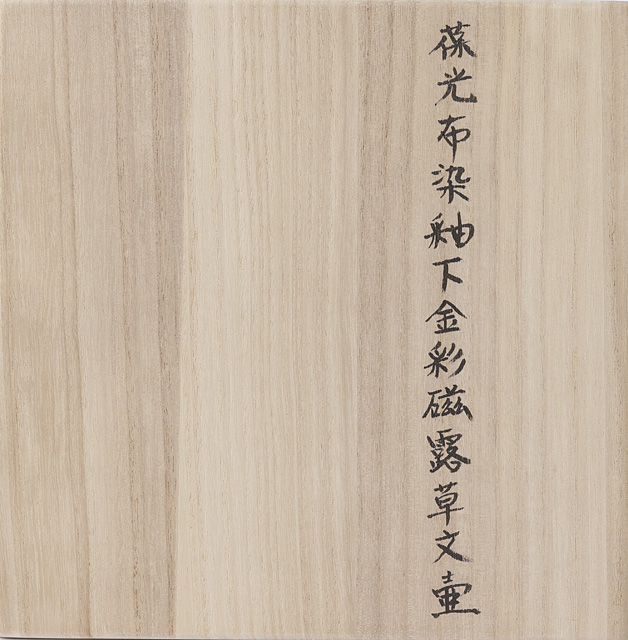 葆光布染釉下金彩磁露草文壷